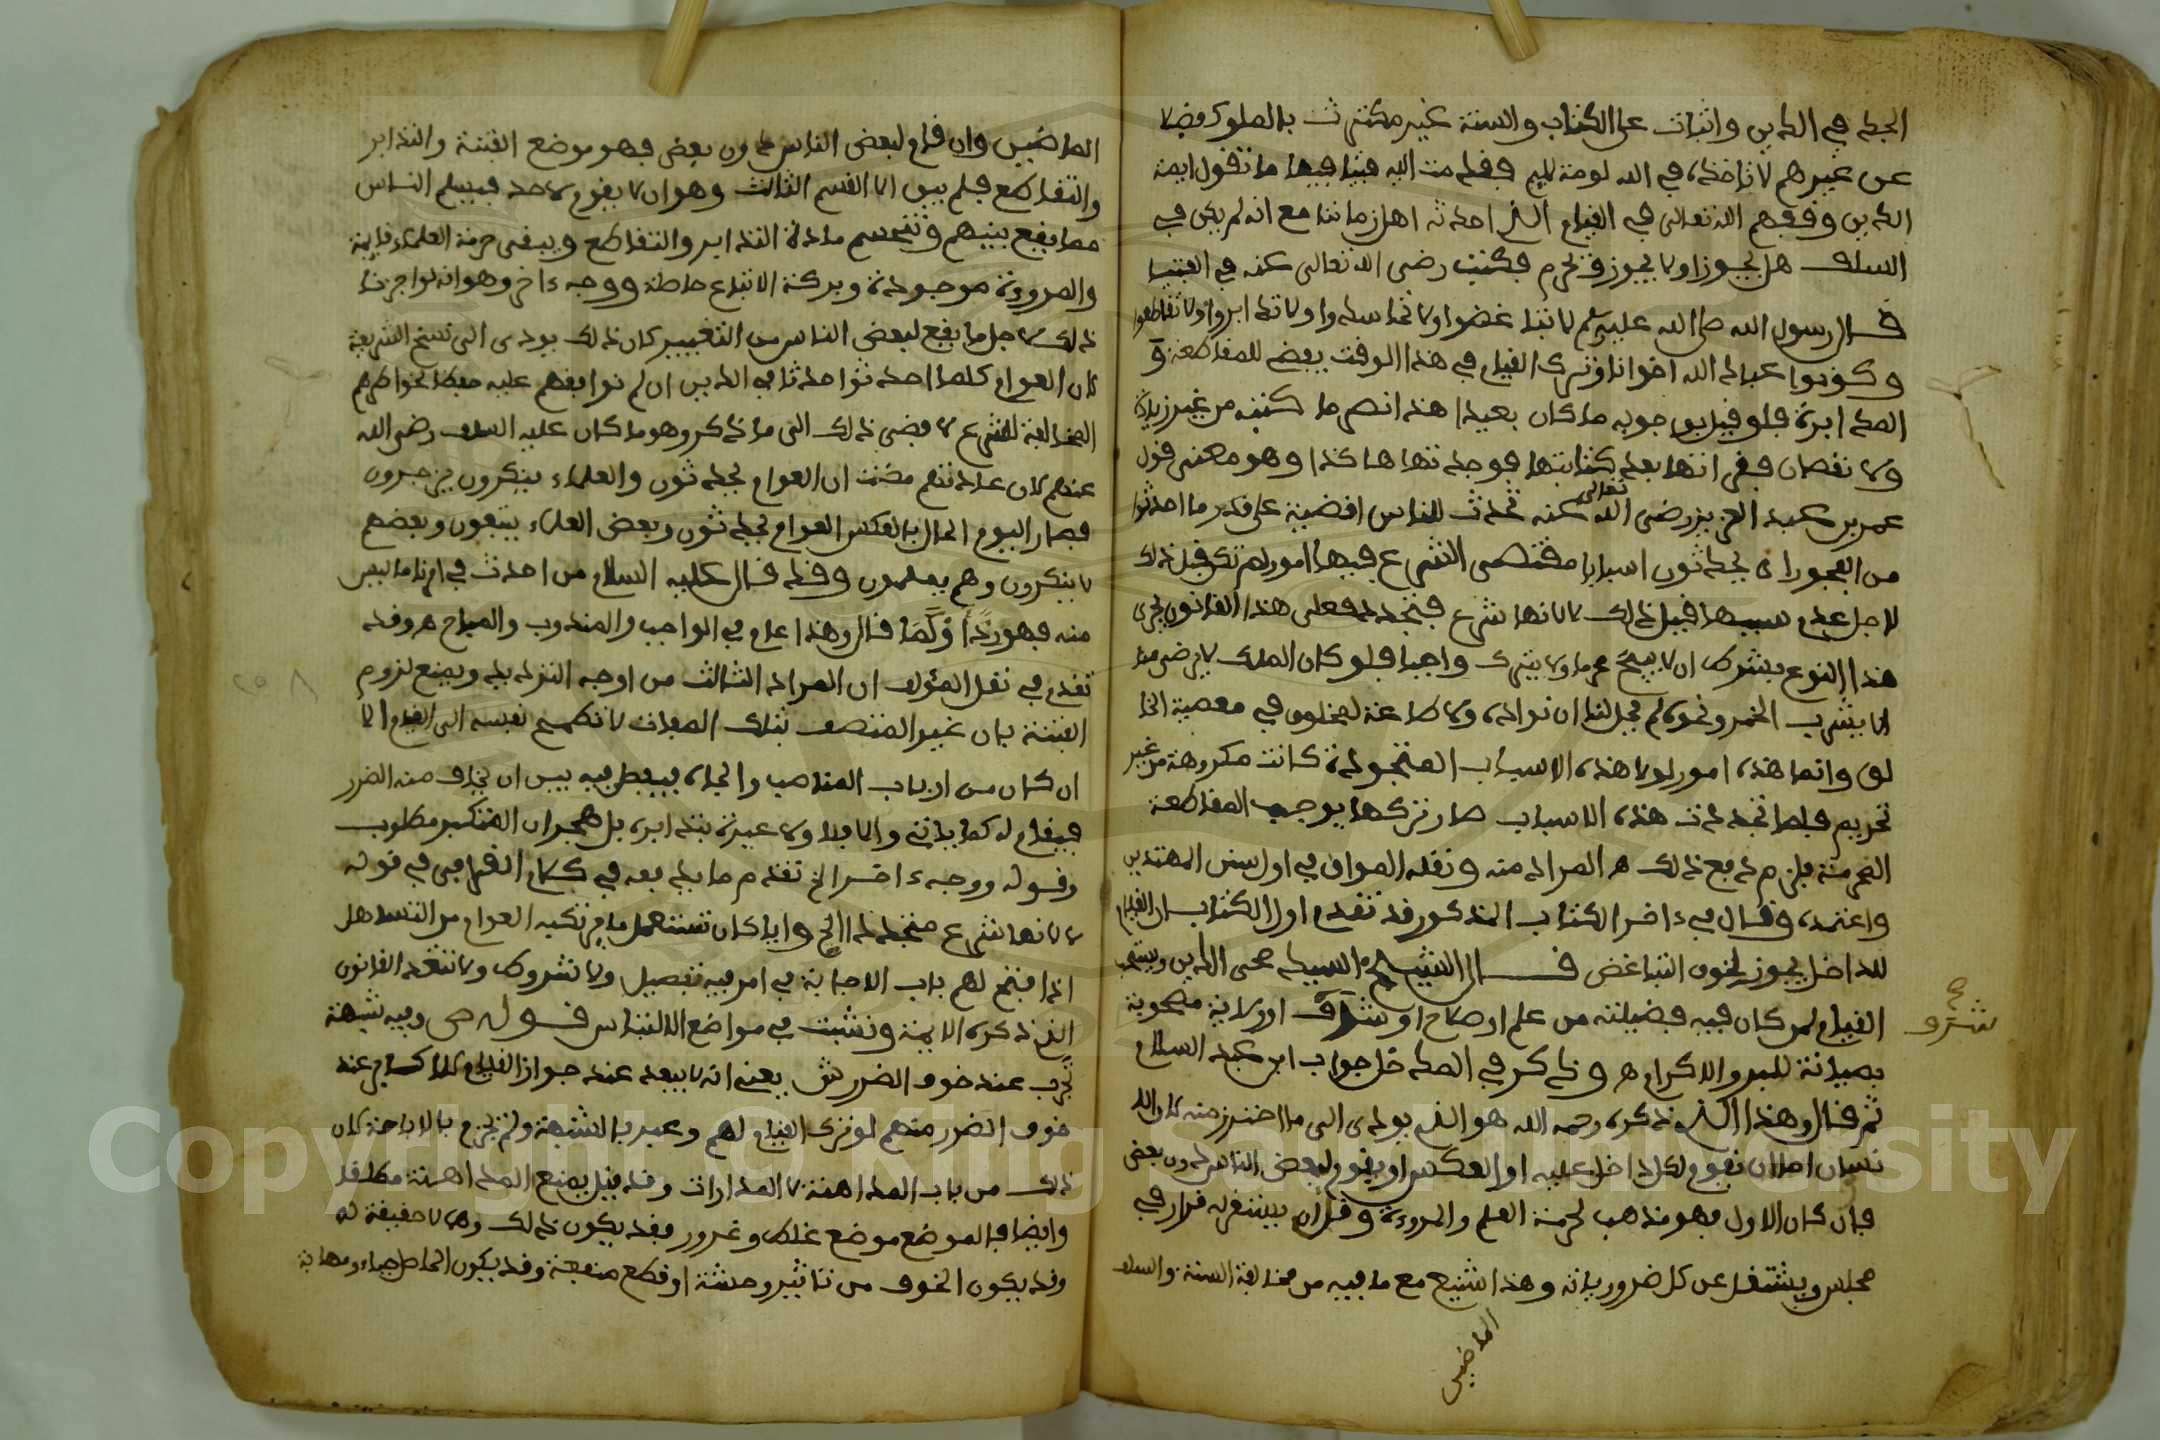 الجد في الدين واثبات على الكتاب والسنة غير مكترث بالملوك فضلا
عن غيرهم لا تاخذه في الله لومة لايم فقدمت اليه فتيا فيها ما تقول ايمة
الدين وفقهم الله تعالى في القيام الذي احدثه اهل زماننا مع انه لم يكن في
السلف هل يجوز او لا يجوز ويحرم فكتب رضي الله تعالى عنه في الفتيا
قال رسول الله صلى الله عليه وسلم لا تباغضوا ولا تحاسدوا ولا تدابروا ولا تقاطعوا
وكونوا عباد الله اخوانا وترك القيام في هذا الوقت يفضي للمقاطعة و
المدابرة فلو قيل بوجوبه ما كان بعيدا هذا نص ما كتبه من غير زيادة
ولا نقصان فقراتها بعد كتابتها فوجدتها هكذا وهو معنى قول
عمر بن عبد العزيز رضي الله تعالى عنه تحدث للناس اقضية على قدر ما احدثوا
من الفجور اي يحدثون اسبابا مقتضى الشرع فيها امور لم تكن قبل ذلك
لاجل عدم سببها قبل ذلك لا لانها شرع فتجدد فعلى هذا القانون يجري
هذا النوع بشرط ان لا يبيح محرما ولا يترك واجبا فلو كان الملك لا يرضى منا
الا بشرب الخمر ونحوه لم يحل لنا ان نواده ولا طاعة لمخلوق في معصية الخا
لق وانما هذه امور لولا هذه الاسباب المتجددة كانت مكروهة من غير
تحريم فلما تجددت هذه الاسباب صار تركها يوجب المقاطعة
المحرمة فلزم دفع ذلك هـ المراد منه ونقله المواق في اول سنن المهتدين
واعتمده وقال في ءاخر الكتاب المذكور قد تقدم اول الكتاب ان القيام
للداخل يجوز لخوف التباغض قال الشيخ السيد محي الدين ويستحب
القيام لمن كان فيه فضيلة من علم او صلاح او شرف او ولاية مصحوبة
بصيانة للبر والاكرام هـ وذكر في المدخل جواب ابن عبد السلام
ثم قال وهذا الذي ذكره رحمه الله هو الذي يودي الى ما احترز منه لان الا
نسان اما ان يقوم لكل داخل عليه او العكس او يقوم لبعض الناس دون بعض
فان كان الاول فهو مذهب لحرمة العلم والمروءة وقل ان يستقر له قرار في
مجلس ويشتغل عن كل ضروريات وهذا شنيع مع ما فيه من مخالفة السنة والسلف
الماضين
شرف
الماضين وان قام لبعض الناس دون بعض فهو موضع الفتنة والتدابر
والتقاطع فلم يبق الا القسم الثالث وهو ان لا يقوم لاحد فيسلم الناس
مما يقع بينهم وتنحسم مادة التدابر والتقاطع ويبقى حرمة العلماء قايمة
والمروءة موجودة وبركة الاتباع حاصلة ووجه ءاخر وهو انه لو اجزنا
ذلك لاجل ما يقع لبعض الناس من التغيير كان ذلك يودي الى نسخ الشريعة
لان العوام كلما احدثوا حدثا في الدين ان لم نوافقهم عليه حفظا لخواطرهم
المخالفة للشرع لافضى ذلك الى ما ذكر وهو ما كان عليه السلف رضي الله
عنهم لان عادتهم مضت ان العوام يحدثون والعلماء ينكرون يزجرون
فصار اليوم الحال بالعكس العوام يحدثون وبعض العلماء يتبعون وبعضهم
لا ينكرون وهم يعلمون وقد قال عليه السلام من احدث في امرنا ما ليس
منه فهو رد اولا قال وهذا عام في الواجب والمندوب والمباح هـ وقد
تقدم في نقل المؤلف ان المراد الثالث من اوجه الترديد ويمنع لزوم
الفتنة بان غير المتصف بتلك الصفات لا تطمح نفسه الى القيام الا
ان كان من ارباب المناصب والجاه فيفصل فيه بين ان يخاف منه الضرر
فيقام له كما ياتي والا فلا ولا عبرة بتدابره بل هجران المتكبر مطلوب
وقوله ووجه ءاخر الخ تقدم ما يدفعه في كلام القرافي في قوله
لا لانها شرع متجدد الخ وايا كان تستعمل ما يرتكبه العوام من التساهل
اذا فتح لهم باب الاجابة في امر فيه تفصيل ولا شروط ولا تتعد القانون
الذي ذكره الايمة وتثبت في مواضع الالتباس قوله ص وفيه شبهة
تجب عند خوف الضرر ش يعني انه لا يبعد عند جواز القيام للكافر عند
خوف الضرر منهم لو ترك القيام لهم وعبر بالشبهة ولم يجزم بالاباحة لان
ذلك من باب المداهنة لا المدارات وقد قيل بمنع المداهنة مطلقا
وايضا فالموضع موضع غلط وغرور فقد يكون ذلك وهما لا حقيقة له
وقد يكون الخوف من تاثير وحشة او قطع منفعة وقد يكون الحاصل حياء ومهابة
٢٥٨
Copyright © King Saud University